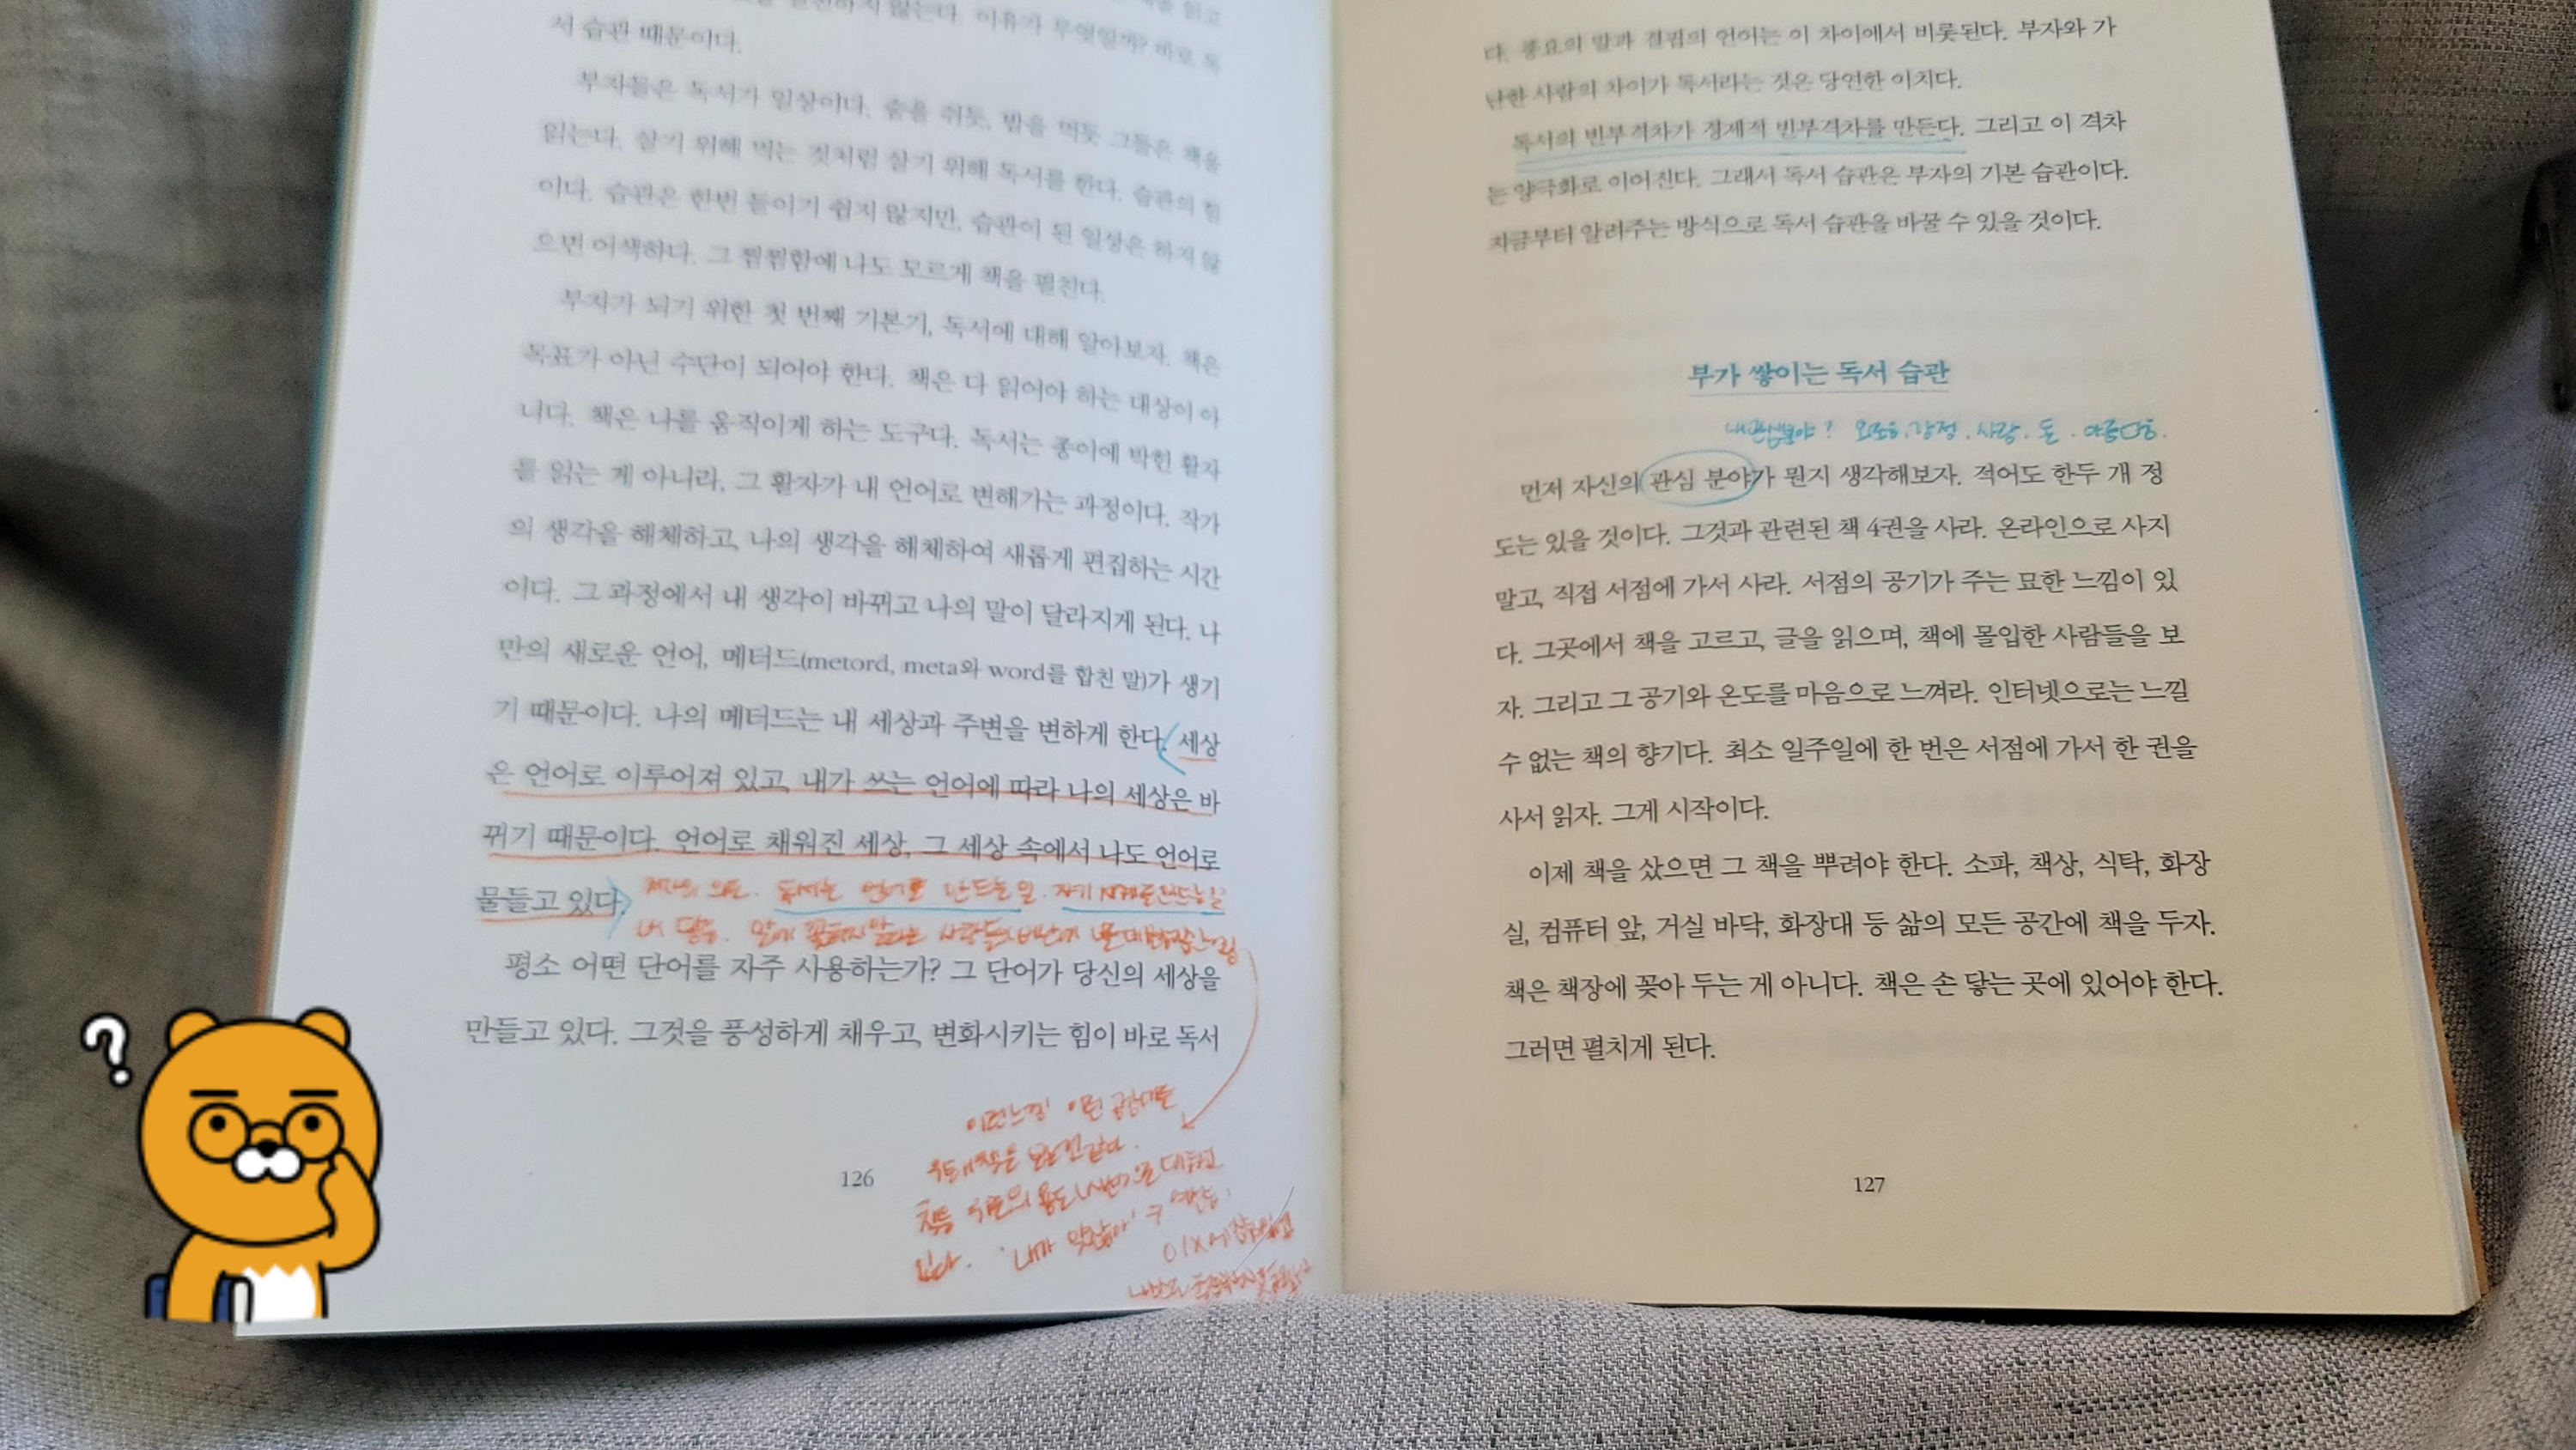 실천하지 않는다. 이유가 무엇일까? 바로 독
서 습관 때문이다.
부자들은 독서가 일상이다. 숨을 쉬듯, 밥을 먹듯 그들은 책을
읽는다. 살기 위해 먹는 것처럼 살기 위해 독서를 한다. 습관의 힘
이다. 습관은 한번 들이기 쉽지 않지만, 습관이 된 일상은 하지 않
으면 어색하다. 그 찜찜함에 나도 모르게 책을 펼친다.
부자가 되기 위한 첫 번째 기본기, 독서에 대해 알아보자. 책은
목표가 아닌 수단이 되어야 한다. 책은 다 읽어야 하는 대상이 아
니다. 책은 나를 움직이게 하는 도구다. 독서는 종이에 박힌 활자
를 읽는 게 아니라, 그 활자가 내 언어로 변해가는 과정이다. 작가
의 생각을 해체하고, 나의 생각을 해체하여 새롭게 편집하는 시간
이다. 그 과정에서 내 생각이 바뀌고 나의 말이 달라지게 된다. 나
만의 새로운 언어, 메터드(metord, meta와 word를 합친 말)가 생기
기 때문이다. 나의 메터드는 내 세상과 주변을 변하게 한다. 세상
은 언어로 이루어져 있고, 내가 쓰는 언어에 따라 나의 세상은 바
뀌기 때문이다. 언어로 채워진 세상, 그 세상 속에서 나도 언어로
물들고 있다.
독서는 언어로 만드는 일.
평소 어떤 단어를 자주 사용하는가? 그 단어가 당신의 세상을
만들고 있다. 그것을 풍성하게 채우고, 변화시키는 힘이 바로 독서
이런느낌! 이런
126
다. 풍요의 말과 결핍의 언어는 이 차이에서 비롯된다. 부자와 가
난한 사람의 차이가 독서라는 것은 당연한 이치다.
독서의 빈부격차가 경제적 빈부격차를 만든다. 그리고 이 격차
는 양극화로 이어진다. 그래서 독서 습관은 부자의 기본 습관이다.
지금부터 알려주는 방식으로 독서 습관을 바꿀 수 있을 것이다.
부가 쌓이는 독서 습관
내관심분야? 감정. 사랑. 돈.
먼저 자신의 관심 분야가 뭔지 생각해보자. 적어도 한두 개 정
도는 있을 것이다. 그것과 관련된 책 4권을 사라. 온라인으로 사지
말고, 직접 서점에 가서 사라. 서점의 공기가 주는 묘한 느낌이 있
다. 그곳에서 책을 고르고, 글을 읽으며, 책에 몰입한 사람들을 보
자. 그리고 그 공기와 온도를 마음으로 느껴라. 인터넷으로는 느낄
수 없는 책의 향기다. 최소 일주일에 한 번은 서점에 가서 한 권을
사서 읽자. 그게 시작이다.
이제 책을 샀으면 그 책을 뿌려야 한다. 소파, 책상, 식탁, 화장
실, 컴퓨터 앞, 거실 바닥, 화장대 등 삶의 모든 공간에 책을 두자.
책은 책장에 꽂아 두는 게 아니다. 책은 손 닿는 곳에 있어야 한다.
그러면 펼치게 된다.
127
?